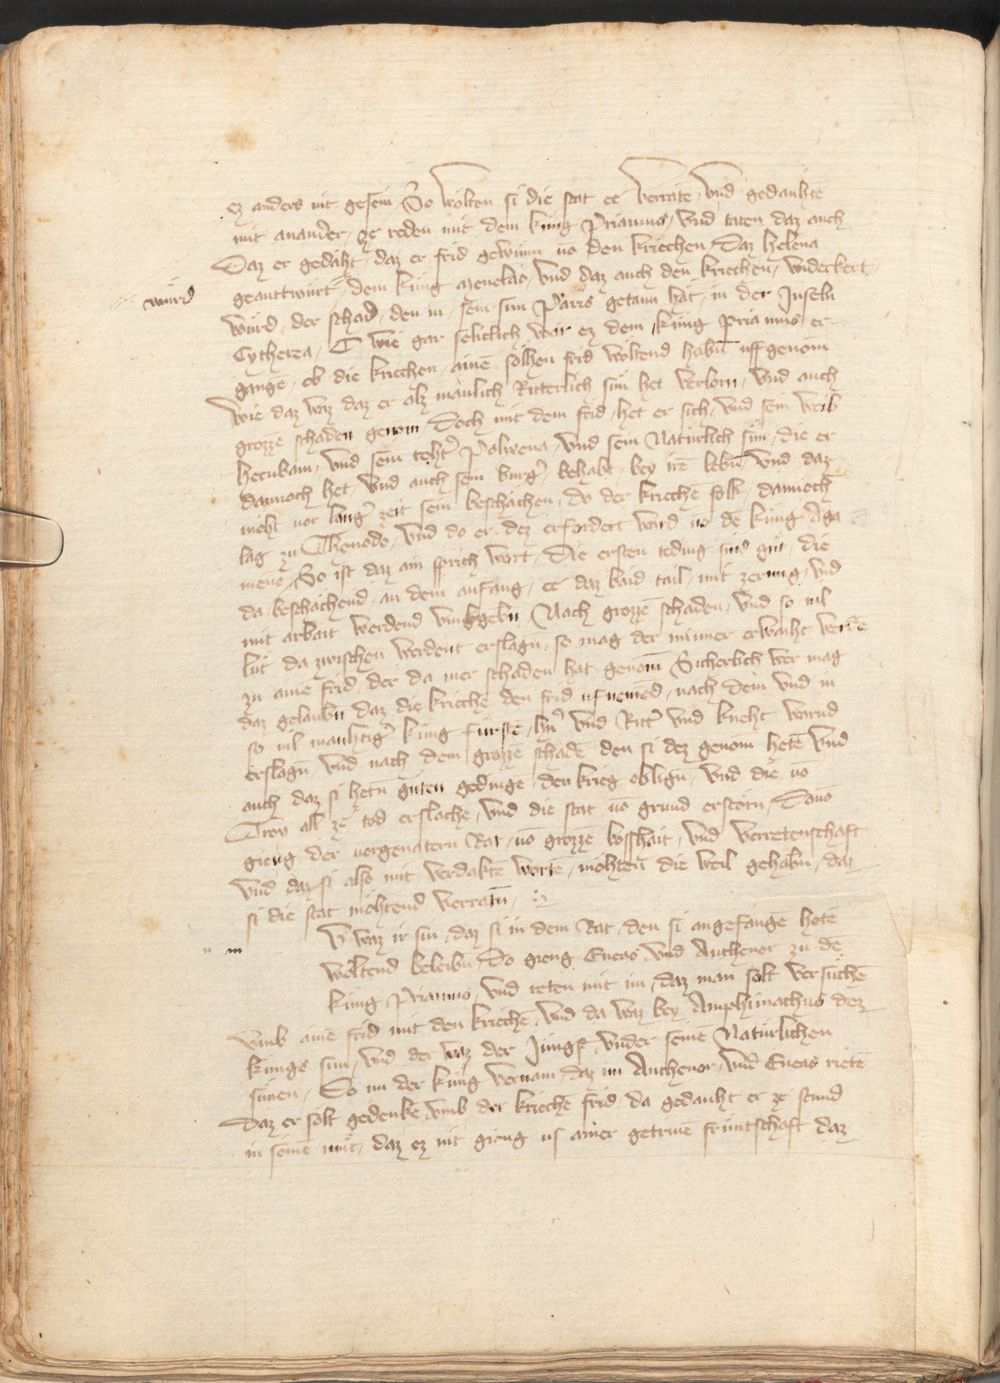 ez anders nit gesein So wolten si die stat ee verrate, vnd gedauhte
mit anander, ze reden mit dem king Priamus, vnd taten daz auch
Daz er gedaht, daz er frid gewunn uō den kriechen, Daz helena
geanttwürt, dem küng menelao, vnd daz auch den kriechen, widerkert,
würd
würd, der schad, den in, sein sun Paris getann hat, in der Inseln
Cytherea, O wie gar seliclich wär ez dem küng priamus er-
gangē, ob die kriechen, ainē solhen frid woltend habn̄ uffgenom̄
Wie daz waz daz er alz manlich Ritterlich sün het verlorn, vnd auch
grozze schaden genom Doch mit dem frid, het er sich, vnd sein weib
hecubam, vnd sein toht̾ Polixena, vnd sein Naturlich sün, die er
dannoch het, vnd auch sein burg̾ behabt, bey irē lebn̄, vnd daz
moht uor lang̾ zeit sein beschachen, do der kriechē folk, dannoch
lag zu Thenedo, vnd do er dez erfordert ward uō dē küng Aga
menō, So ist daz ain sprich wort, Die ersten teding sind gut, die
da beschachend, an dem anfang, ee daz baid tail, mit zerung, vnd
mit arbait werdend vmbgebn Nach grozzē schaden, vnd so uil
lüt da zwischen werdent erslagn̄, so mag der minner erwaiht werdē
zu ainē frid, der da mer schaden hat genom̄ Sicherlich wer mag
daz gelaubn̄ daz die kriechē den frid uf nemēd, nach dem vnd in
so uil mauhtig̾ küng fürstē, h̾n̾ vnd Ritt̾ vnd kneht warnd
erslagn̄, vnd nach dem grozzē schadē den si dez genom hetē vnd
auch daz si hetn̄ guten gedingē den krieg oblign̄, vnd die uō
Troy all ze tod erslachē, vnd die stat uō grund erstörn, Dauō
gieng der uorgenatern Rat, uō grozze bosshait, vnd verretenschaft
vnd daz si also mit verdaktē wortē, mohten̄ die weil gehabn̄, daz
si die stat mohtend verratn̄,
n   n
V waz ir sin, daz si in dem Rat, den si angefange hetē
woltend beleibn̄ Do gieng Eneas vnd Anthenor zu dē
küng Priamus, vnd reten mit im, daz man solt versuchē
vmb ainē frid mit den kriechē, vnd da waz bey Amphimachus dez
küngs sun, vnd der waz der Jungst vnder seinē Natürlichen
sünen, Do nu der küng vernam, daz im Anthenor, vnd Eneas rietē
Daz er solt gedenke vmb der kriechē frid, da gedauht er ze stund
in seinē mut, daz ez nit gieng us ainer getruē früntschaft daz